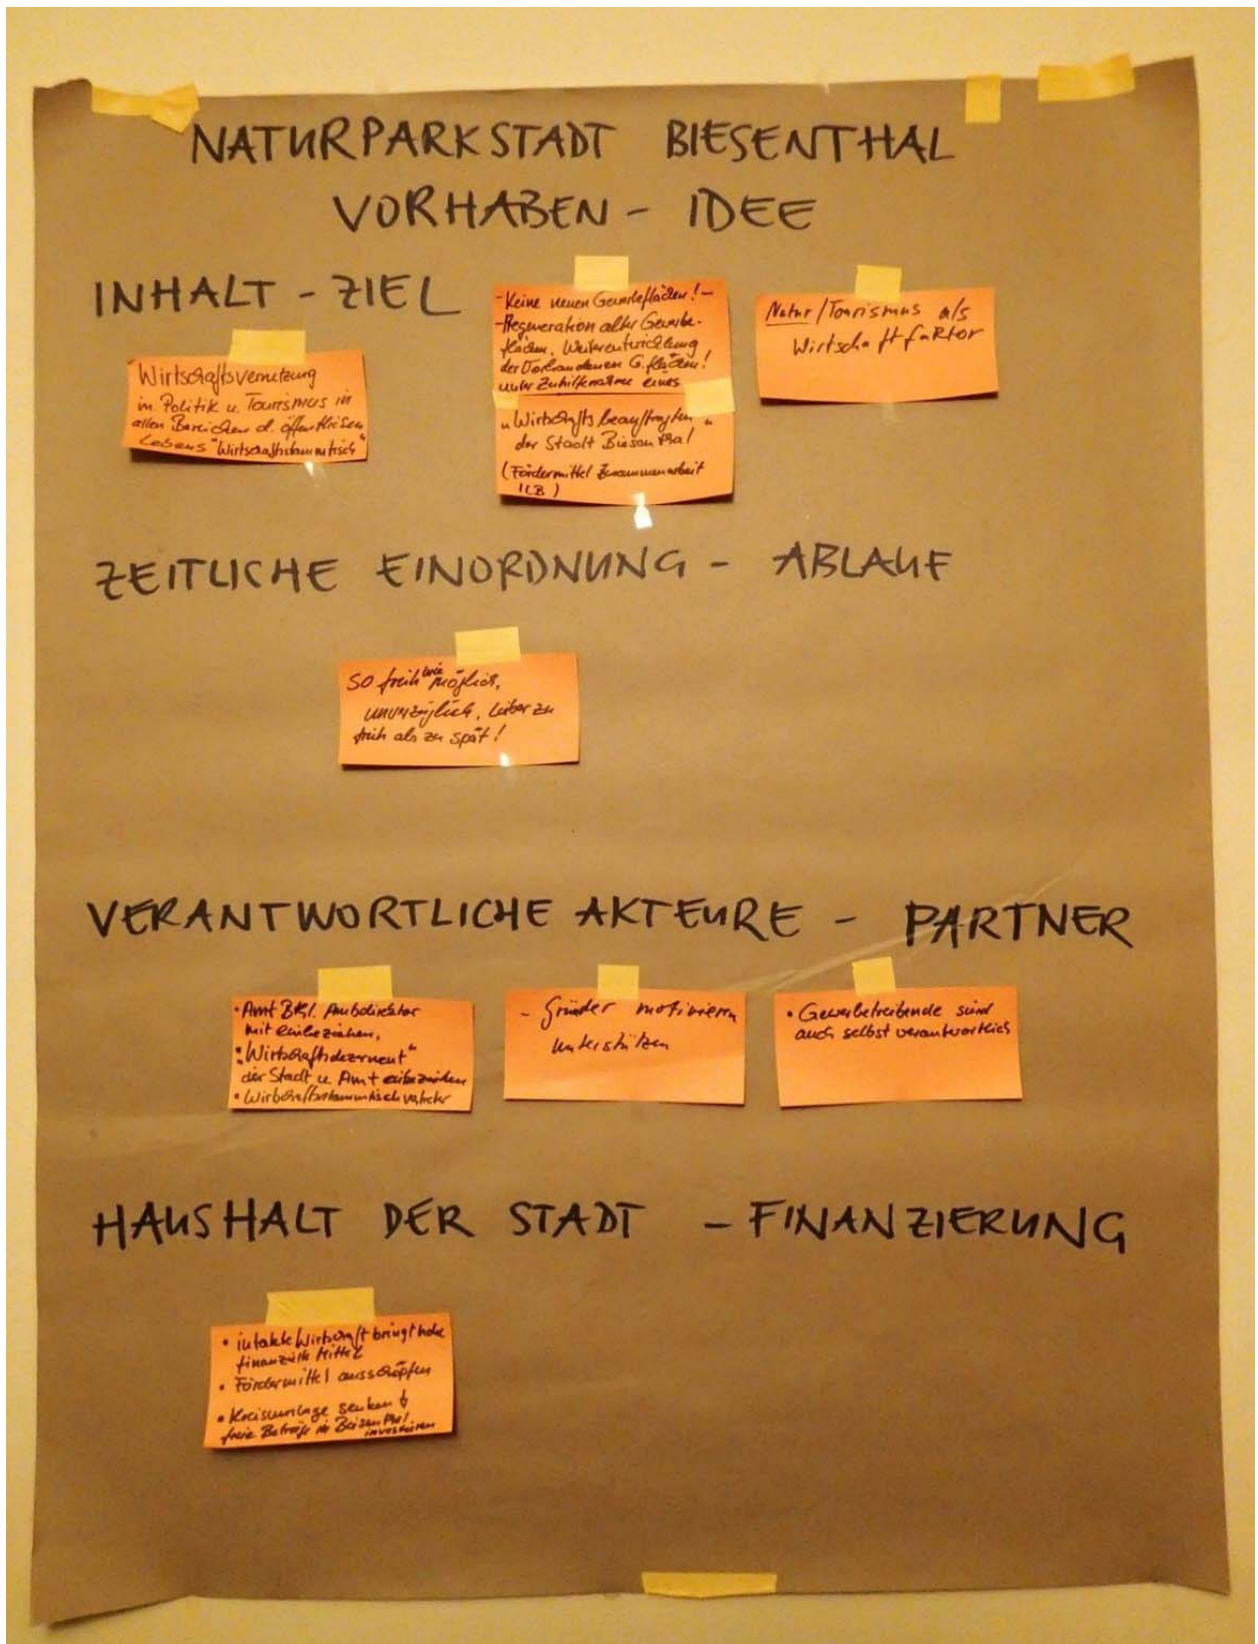 NATURPARKSTADT BIESENTHAL
VORHABEN - IDEE
INHALT - ZIEL
Wirtschaftsvernetzung
in Politik u. Tourismus in
allen Bereichen d. öffentlichen
Lebens "Wirtschaftsstammtisch"
- Keine neuen Gewerbeflächen! -
- Regeneration alter Gewerbe-
flächen. Weiterentwicklung
der Vorhandenen G.flächen!
unter Zuhilfenahme eines
„Wirtschaftsbeauftragten"
der Stadt Biesenthal
(Fördermittel Zusammenarbeit
ILB)
Natur/Tourismus als
Wirtschaftfaktor
ZEITLICHE EINORDNUNG - ABLAUF
So früh wie möglich,
unverzüglich, lieber zu
früh als zu spät!
VERANTWORTLICHE AKTEURE - PARTNER
• Amt Amtsdirektor
mit einbeziehen,
• "Wirtschaftsdezernent"
der Stadt u. Amt einbeziehen
• Wirtschaftsstammtischvertreter
- Gründer motivieren
unterstützen
• Gewerbetreibende sind
auch selbst verantwortlich
HAUSHALT DER STADT - FINANZIERUNG
• intakte Wirtschaft bringt hohe
finanzielle Mittel
• Fördermittel ausschöpfen
• Kreisumlage senken
freie Beträge in Beisenthal
investieren